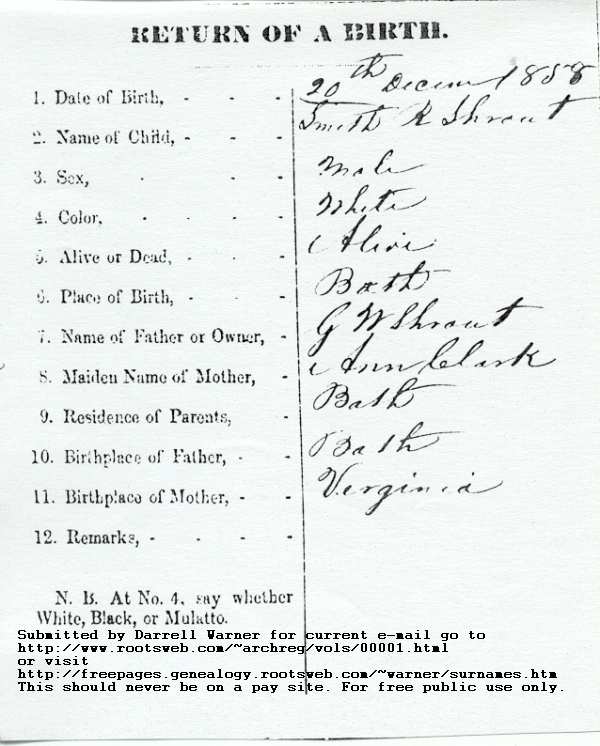 RETURN OF A BIRTH.
1. Date of Birth, - - - 20th Decem 1858
2. Name of Child, - - - Smith R Shrout
3. Sex, - - - Male
4. Color, - - - - White
5. Alive or Dead, - - - Alive
6. Place of Birth, - - - Bath
7. Name of Father or Owner, - G W Shrout
8. Maiden Name of Mother, - Ann Clark
9. Residence of Parents, - Bath
10. Birthplace of Father, - - Bath
11. Birthplace of Mother, - - Verginia
12. Remarks, - - - -
N. B. At No. 4, say whether
White, Black, or Mulatto.
Submitted by Darrell Warner for current e-mail go to
http://www.rootsweb.com/~archreg/vols/00001.html
or visit
http://freepages.genealogy.rootsweb.com/~warner/surnames.htm
This should never be on a pay site. For free public use only.